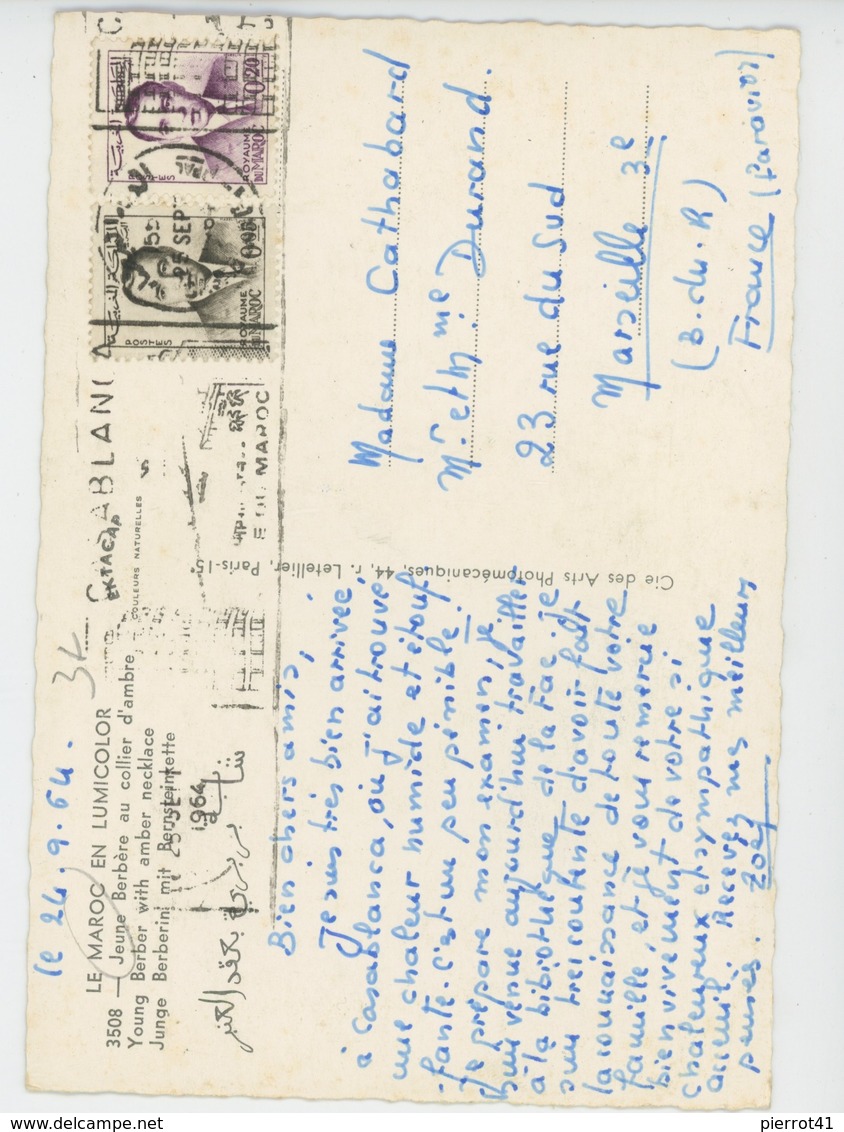 le 24.9.64.
LE MAROC EN LUMICOLOR
3508 — Jeune Berbère au collier d'ambre
Young Berber with amber necklace
Junge Berberini mit Bernsteinkette
شابة بربرية بعقد العنبر
EKTACAP
COULEURS NATURELLES
1964
25 SEPT
CASABLANC
E DU MAROC
POSTES
ROYAUME
DU MAROC
0.05
POSTES
ROYAUME
DU MAROC
0.20
المملكة المغربية
Bien chers amis,
Je suis très bien arrivée,
à Casablanca, où j'ai trouvé
une chaleur humide et étouf
-fante. C'est un peu pénible.
Je prépare mon examen, je
suis venue aujourd'hui travailler
à la bibiothèque de la Fac. Je
suis très contente d'avoir fait
la connaissance de toute votre
famille, et je vous remercie
bien vivement de votre si
chaleureux et sympathique
accueil. Recevez mes meilleurs
pensées. Zoé
Cie des Arts Photomécaniques, 44, r. Letellier, Paris-15e
Madame Cathabard
Mr et Mme Durand.
23 rue du Sud
Marseille 3e
(B. du. R)
France (par avion)
pierrot41